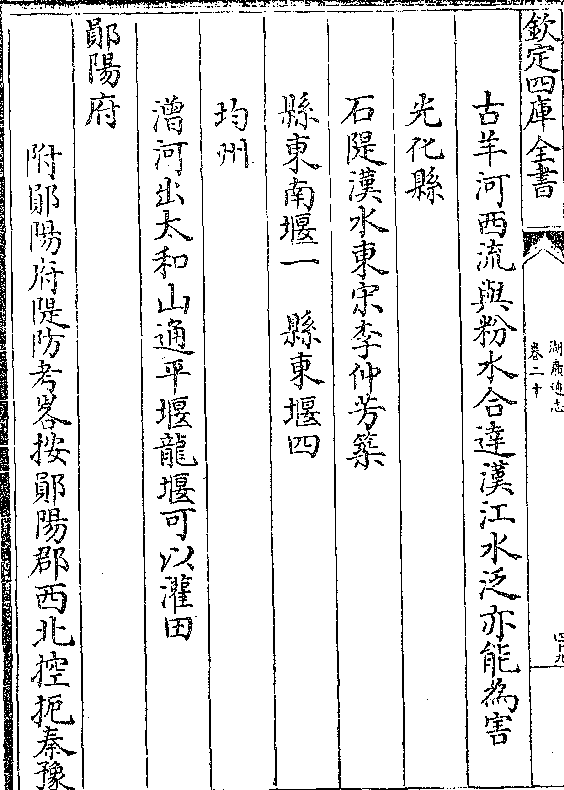 欽定四庫全書
湖廣通志
卷二十
四十九
古羊河西流與粉水合達漢江水泛亦能為害
光化縣
石隄漢水東宋李仲芳築
縣東南堰一　縣東堰四
均州
漕河出太和山通平堰龍堰可以灌田
鄖陽府
附鄖陽府隄防考畧按鄖陽郡西北控扼秦豫